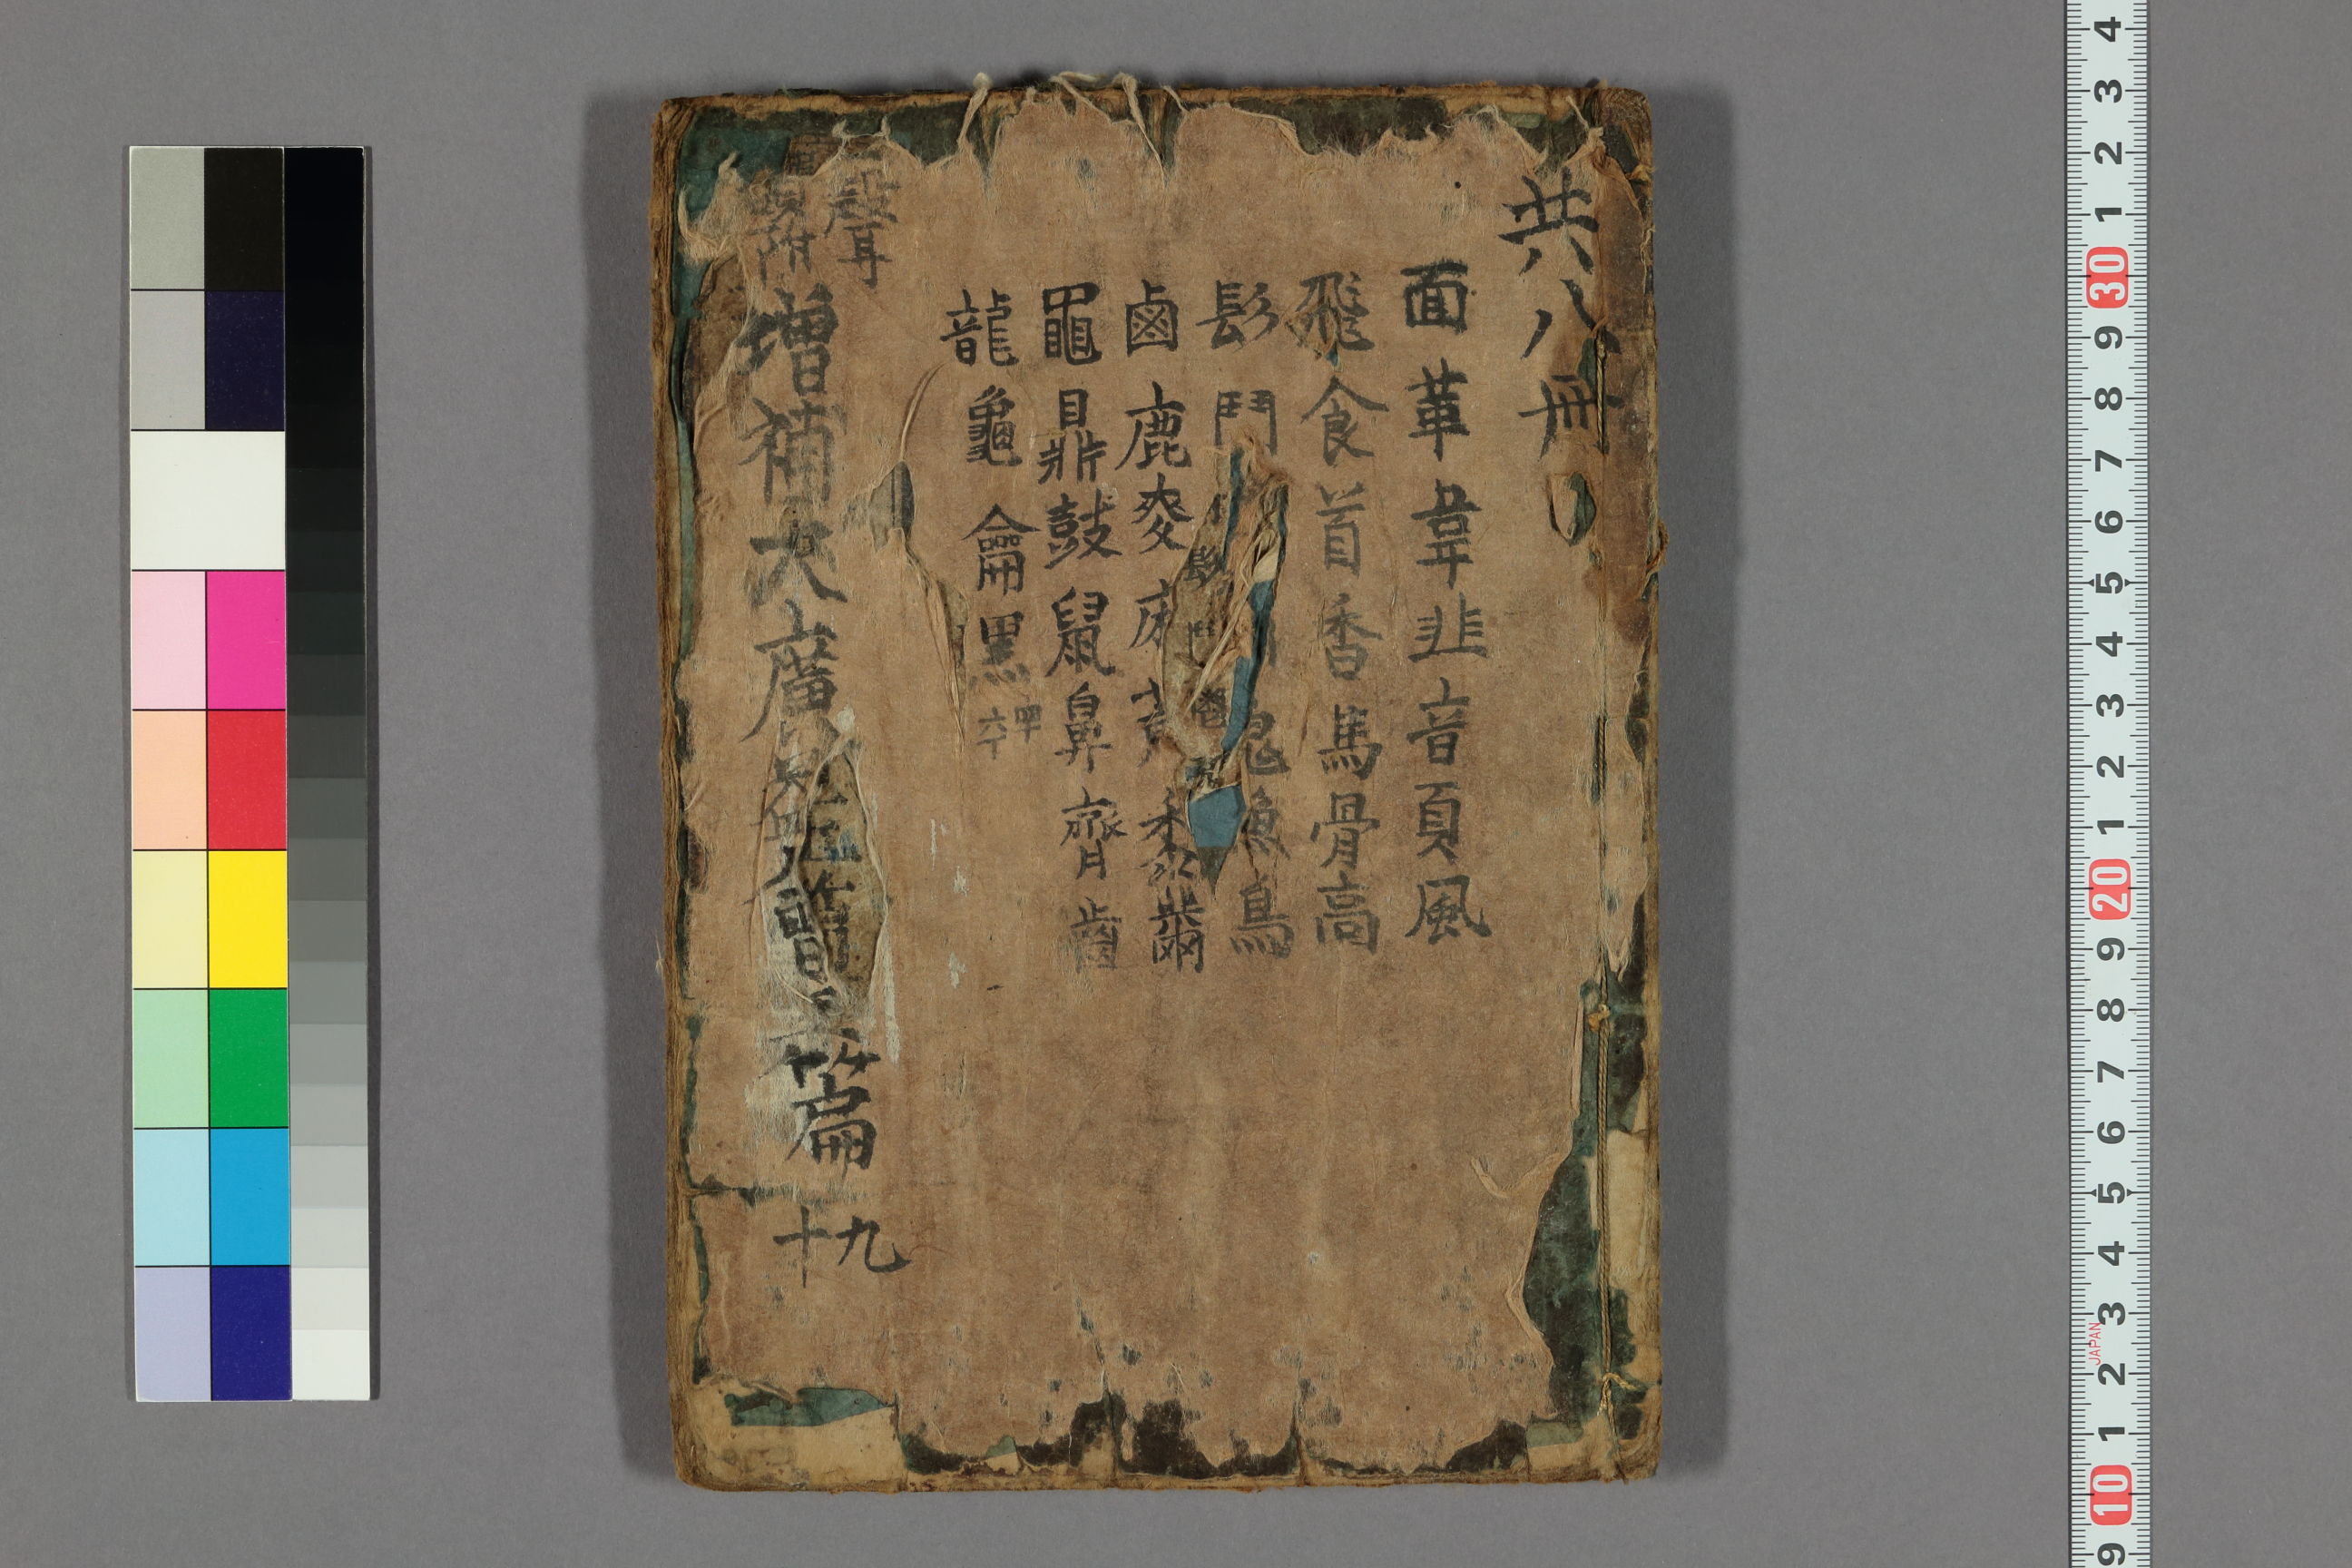 共八冊
面革韋韭音頁風
飛食首香馬骨高
髟鬥鬼魚鳥
鹵鹿麥麻黍黹
黽鼎鼓鼠鼻齊齒
龍龜龠黑
聲
增補大廣益會玉篇
十九
4
3
2
1
30
9
8
7
6
5
4
3
2
1
20
9
8
7
6
5
4
3
2
1
10
9
JAPAN